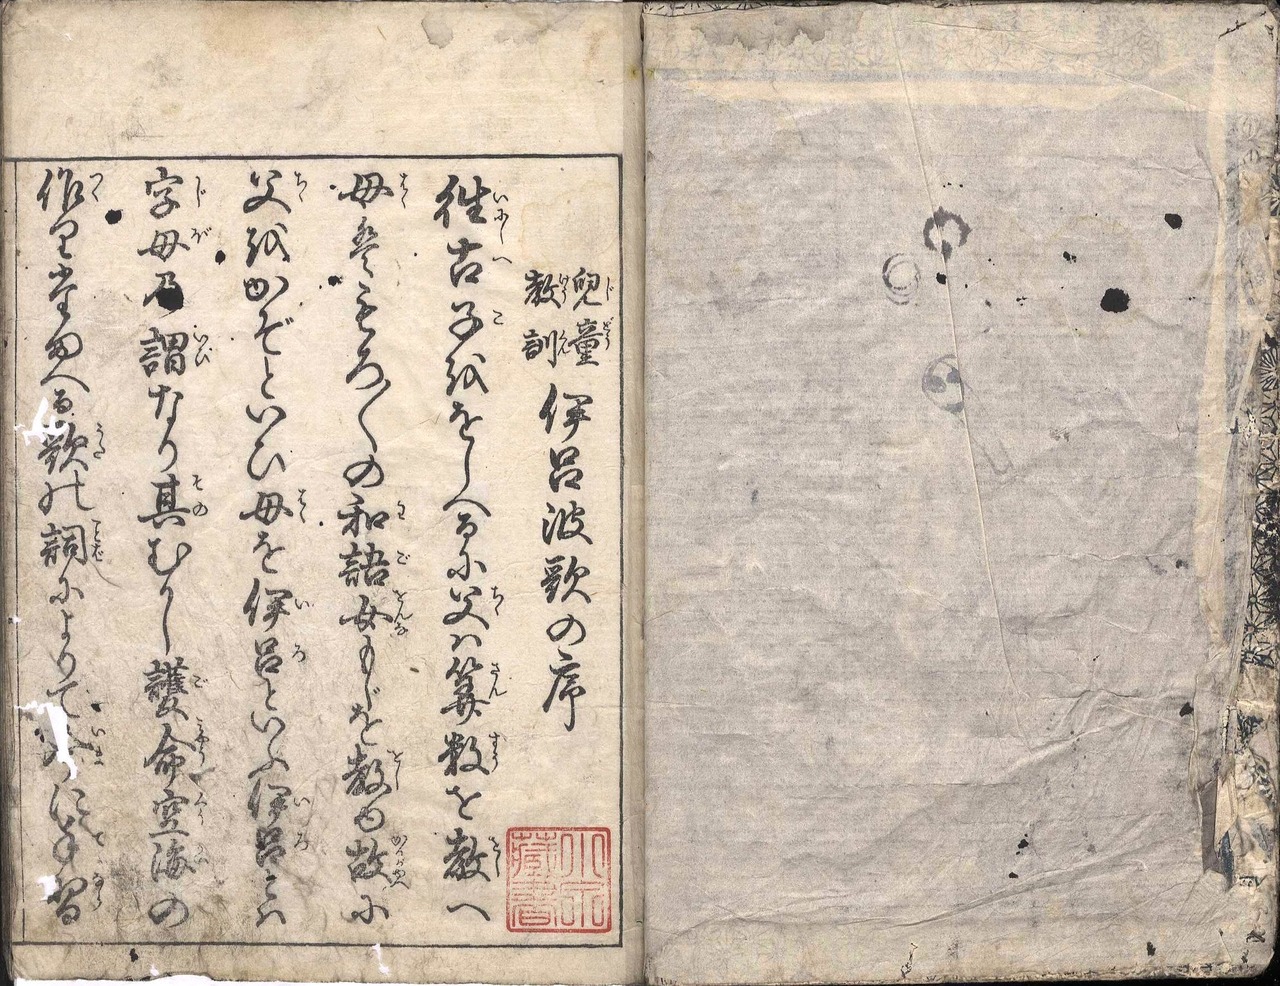 児童
教訓
伊呂波歌の序
往古子をおしへるに父ハ算数を教へ
母ハもろ〳〵の和語女もじを教も故に
父をかぞといひ母を伊呂といふ伊呂ハ
字母の謂なり其むかし護命空海の
作りたまへる歌の詞によりて今に手習